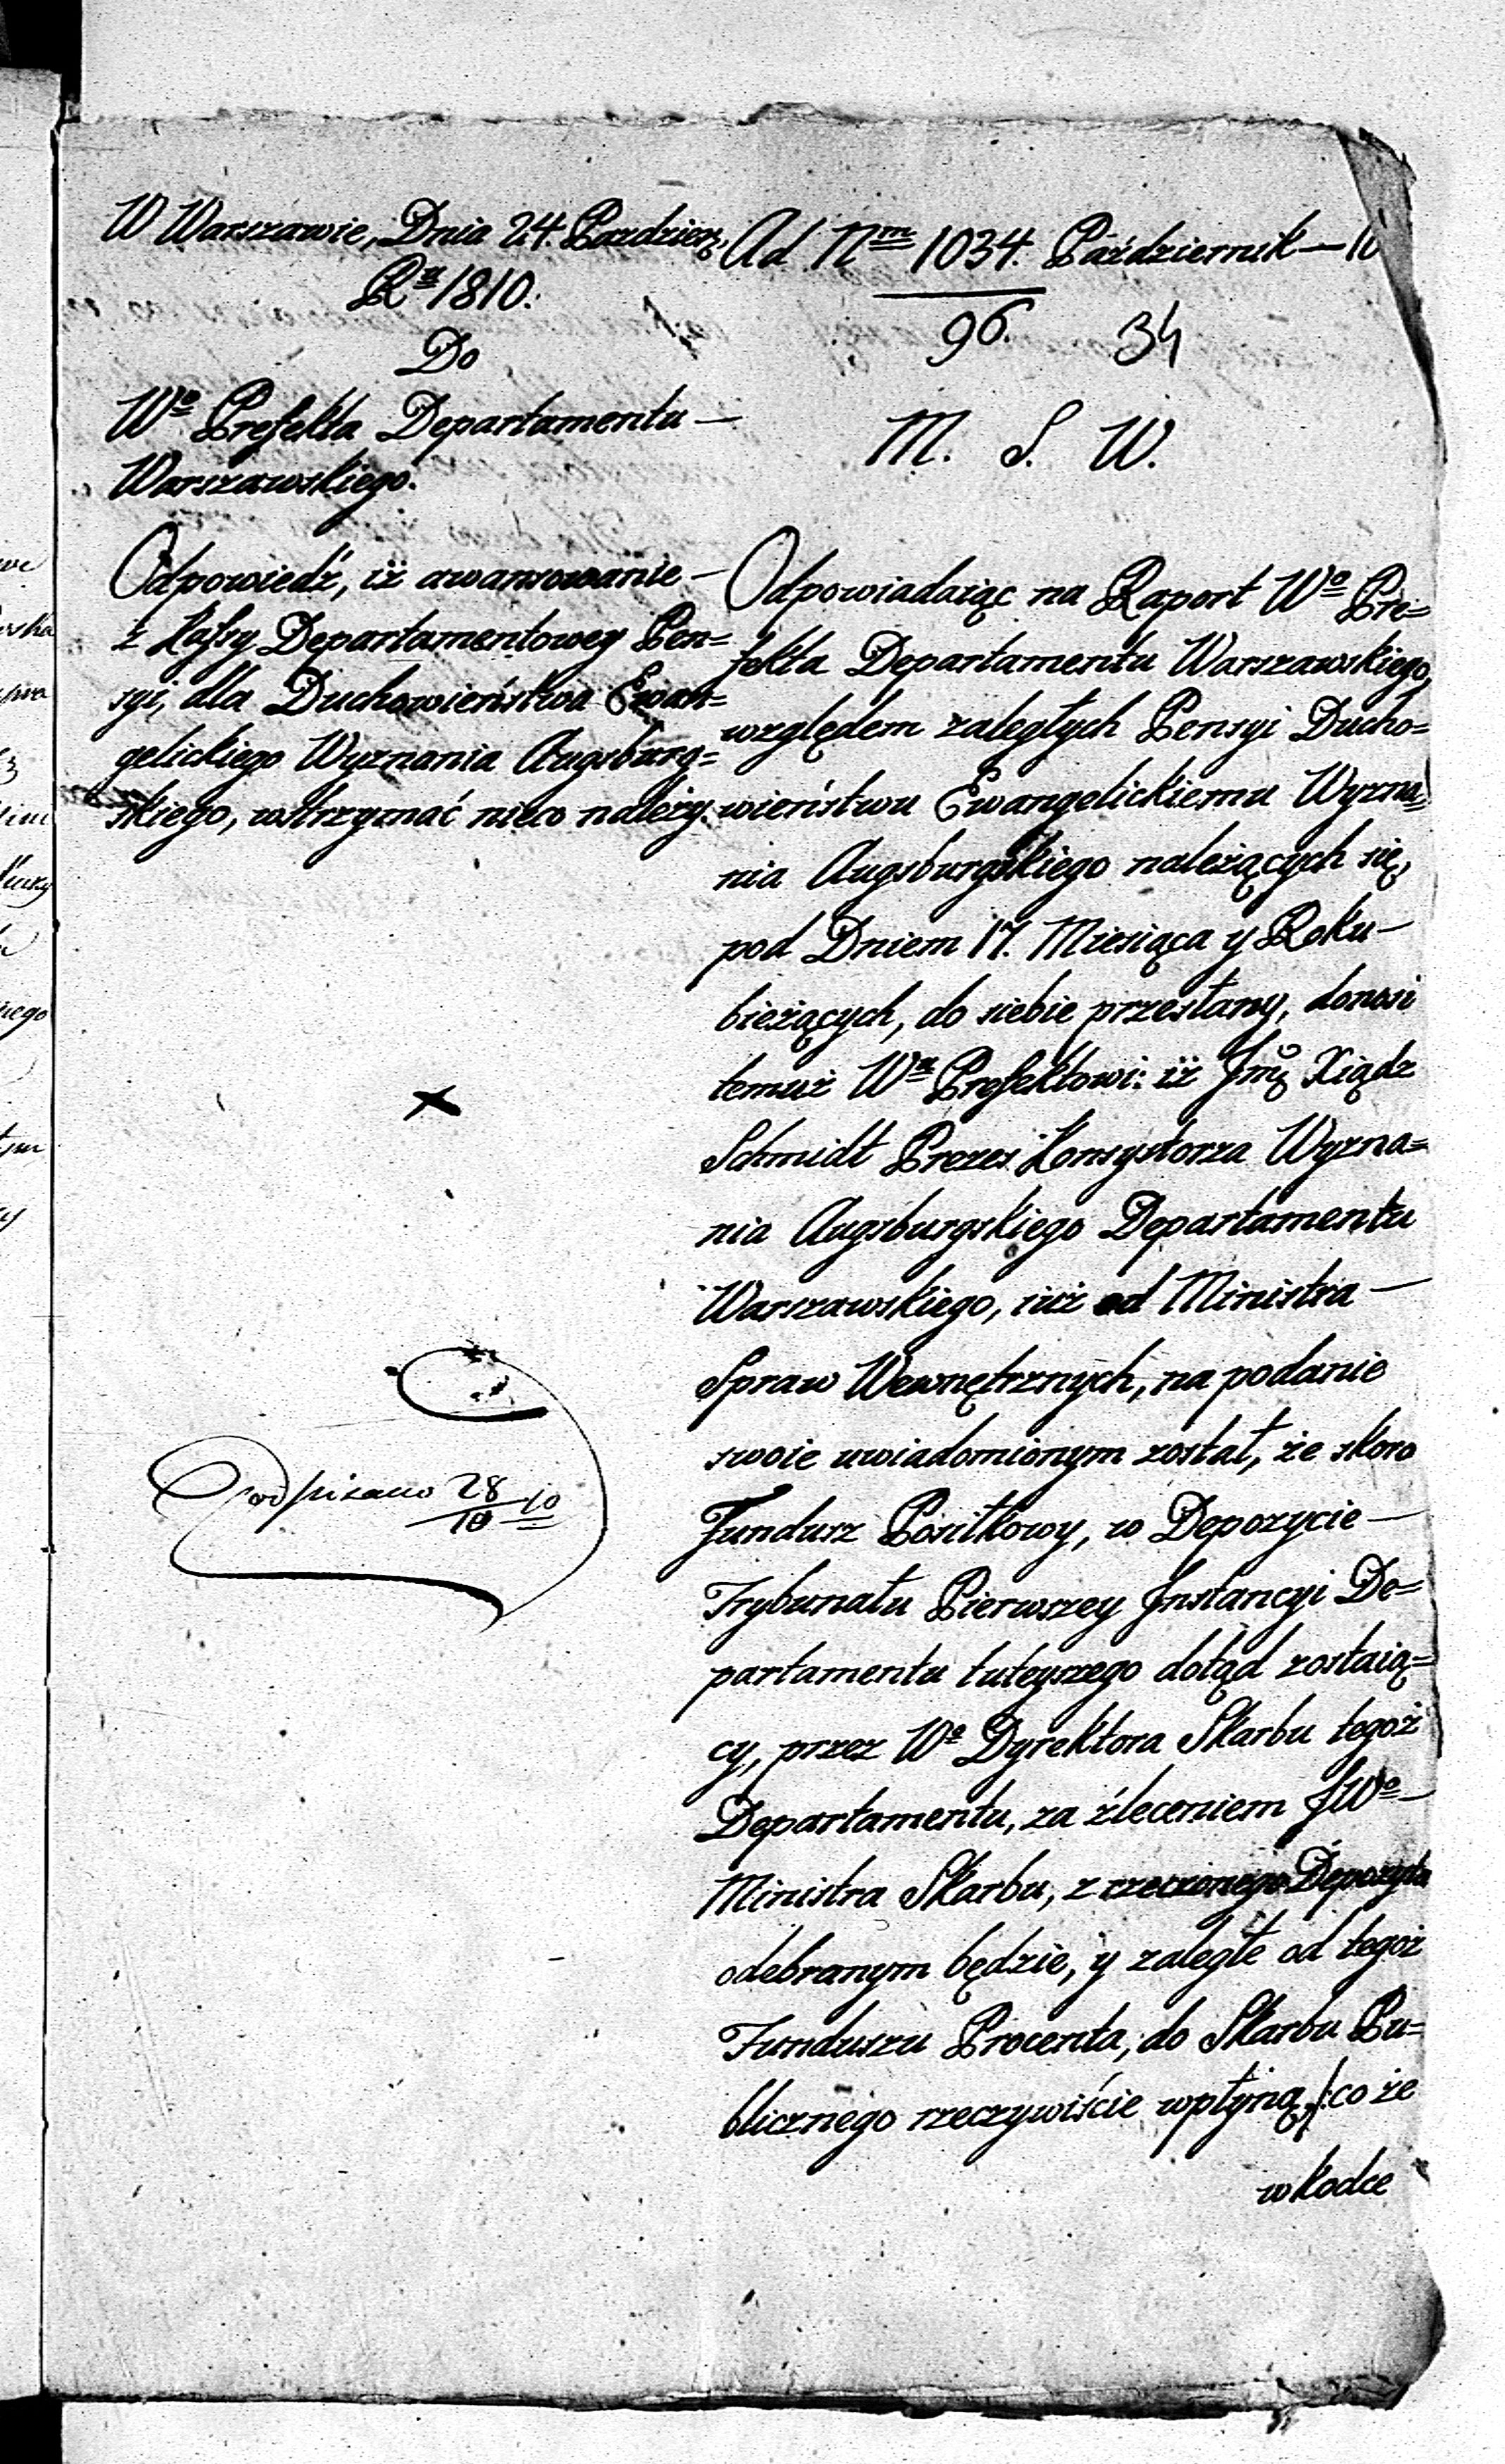 W Warszawie, Dnia 24. Pazdzier.
Rᵘ 1810.
Do
Wº Prefekta Departamentu —
Warszawskiego.
Odpowiedź, iż awansowanie —
z Kaſsy Departamentowey Pen=
syi, dla Duchowieństwa Ewan=
gelickiego Wyznania Augsburg=
skiego, wstrzymać nieco należy.
Podpisano 28/10 10
Ad Nᵐ 1034. Październik — 10
96. 34
M. S. W.
Odpowiadaiąc na Raport Wº Pre=
fekta Departamentu Warszawskiego,
względem zaległych Pensyi Ducho=
wieństwu Ewangelickiemu Wyzna=
nia Augsburgskiego należących się,
pod Dniem 17. Miesiąca y Roku —
bieżących, do siebie przesłany, donosi
temuż Wᵘ Prefektowi: iż Jmć Xiądz
Schmidt Prezes Konsystorza Wyzna=
nia Augsburgskiego Departamentu
Warszawskiego, iuż od Ministra —
Spraw Wewnętrznych, na podanie
swoie uwiadomionym został, że skoro
Fundusz Posiłkowy, w Depozycie —
Trybunału Pierwszey Instancyi De=
partamentu tuteyszego dotąd zostaią=
cy, przez Wº Dyrektora Skarbu tegoż
Departamentu, za źleceniem JWº —
Ministra Skarbu, z rzeczonego Depozytu
odebranym będzie, y zaległe od tegoż
Funduszu Procenta, do Skarbu Pu=
blicznego rzeczywiście wpłyną, /: co że
wkodce